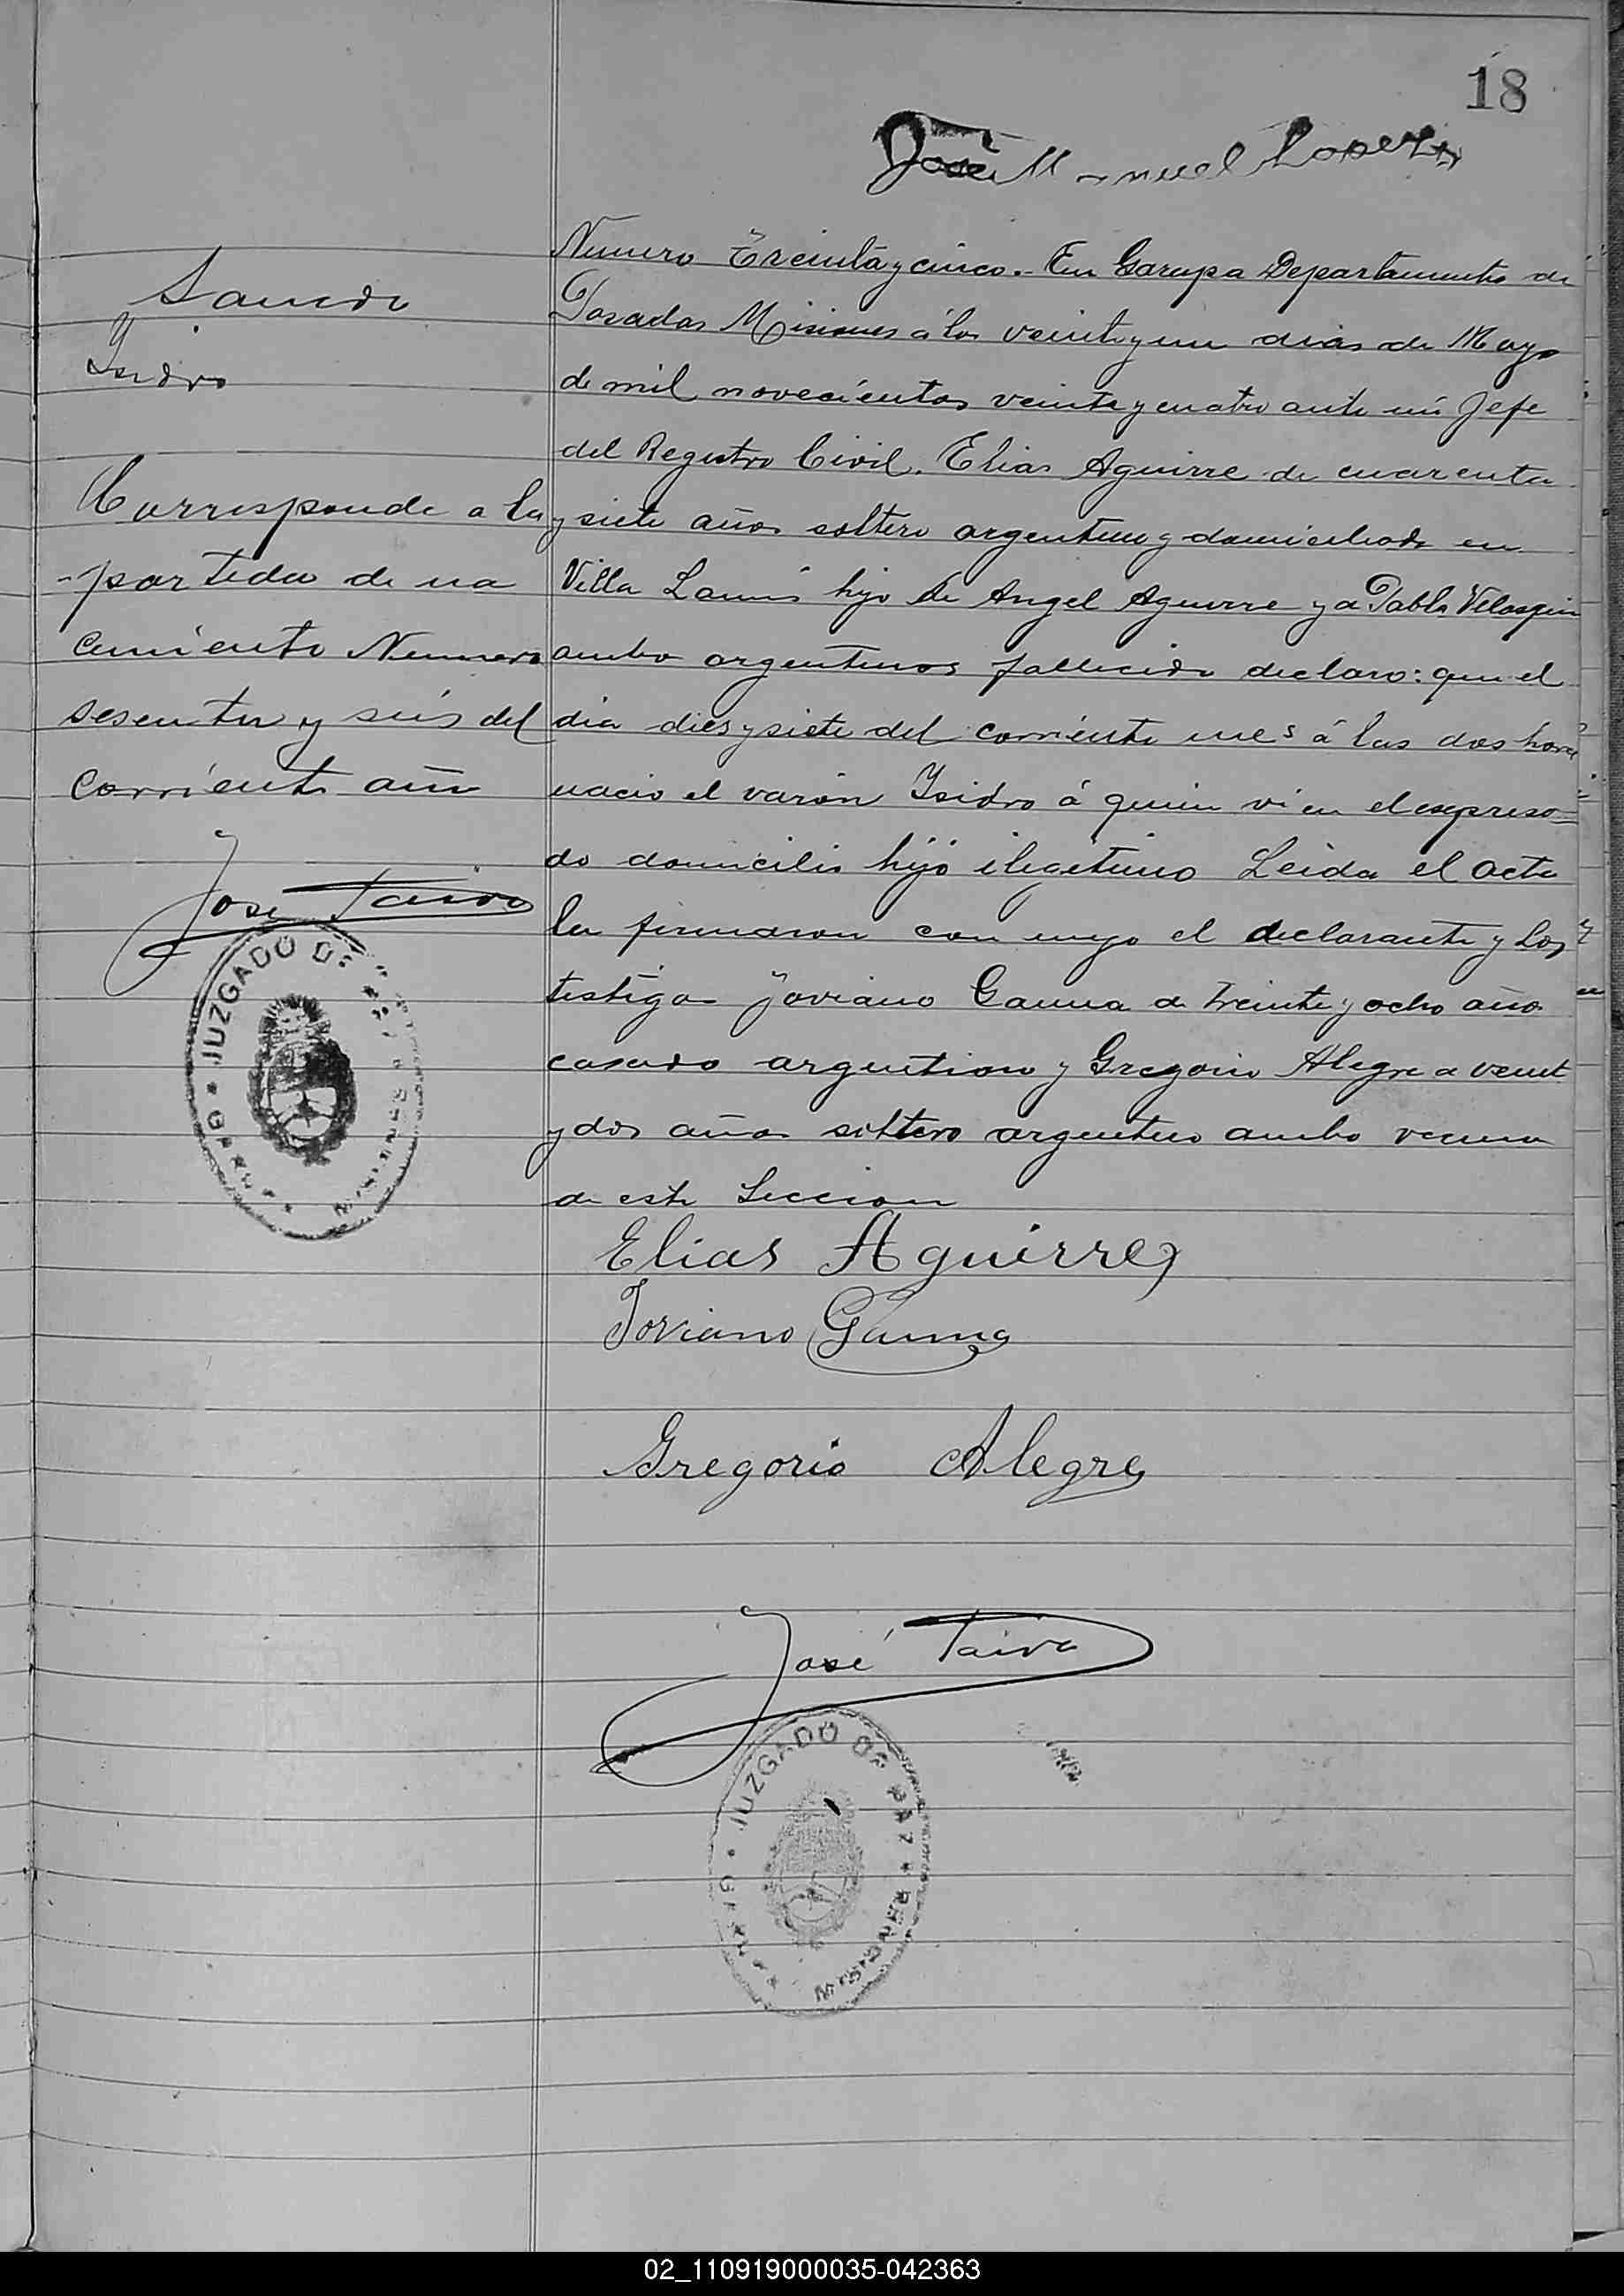 18
José Manuel Lopez
Numero Treinta y cinco. En Garupa Departamento de
Posadas Misiones á los veinte y un dias de Mayo
de mil novecientos veinte y cuatro ante mi Jefe
del Registro Civil. Elias Aguirre de cuarenta
y siete años soltero argentino y domiciliado en
Villa Lanús hijo de Angel Aguirre y a Pabla
ambo argentinos fallecido declaro: que el
dia dies y siete del corriente mes á las dos hora
nacio el varón Ysidro á quien vi en el expresa=
do domicilio hijo ilegitimo Leida el acta
la firmaron con migo el declarante y los
testigos Joviano Gauna de treinta y ocho años
casado argentino y Gregorio Alegre a veint
y dos años soltero argentino ambo vecino
de esta Seccion
Elias Aguirre
Joviano Gauna
Gregorio Alegre
José Paiva
JUZGADO DE PAZ
MISIONES
Ysidro
Corresponde a la
partida de na
cimiento Numero
sesenta y seis del
corriente año
José Paiva
JUZGADO DE
MISIONES
02_110919000035-042363